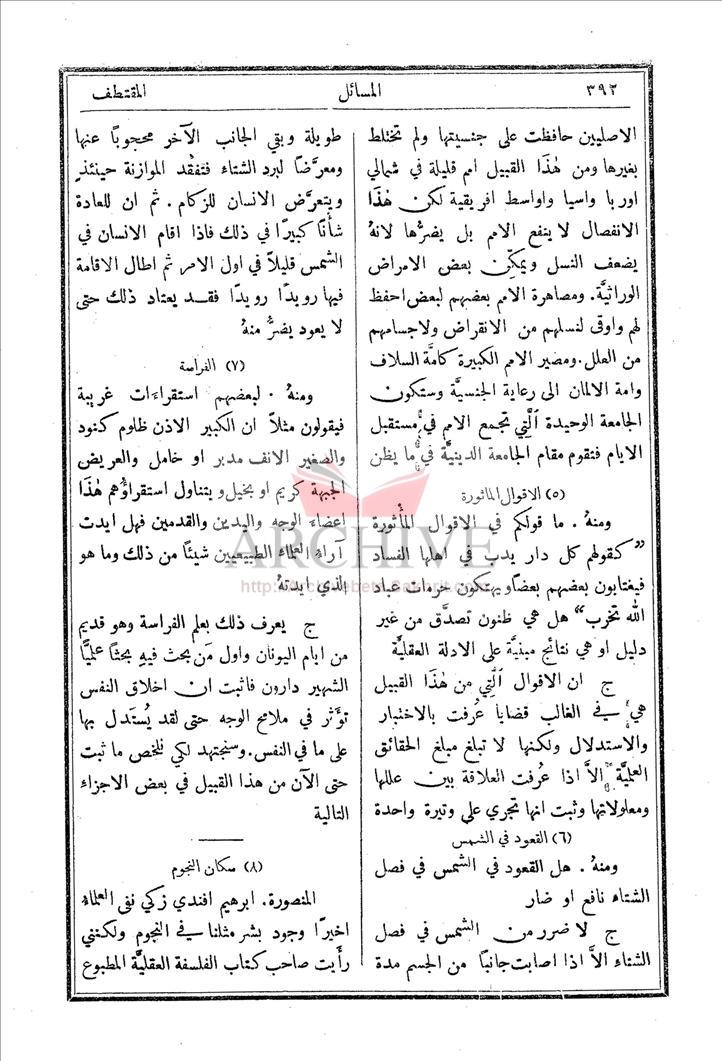 ٣٩٢
المسائل
المقتطف
الاصليين حافظت على جنسيتها ولم تختلط
بغيرها ومن هٰذا القبيل امم قليلة في شمالي
اوربا واسيا واواسط افريقية لكن هٰذا
الانفصال لا ينفع الامم بل يضرُّها لانهُ
يضعف النسل ويمكّن بعض الامراض
الوراثيَّة. ومصاهرة الامم بعضهم لبعض احفظ
لهم واوقى لنسلهم من الانقراض ولاجسامهم
من العلل. ومصير الامم الكبيرة كامَّة السلاف
وامة الالمان الى رعاية الجنسيَّة وستكون
الجامعة الوحيدة الَّتِي تجمع الامم في مستقبل
الايام فتقوم مقام الجامعة الدينيَّة في ما يظن
(٥) الاقوال المأثورة
ومنهُ. ما قولكم في الاقوال المأْثورة
”كقولهم كل دار يدب في اهلها الفساد
فيغتابون بعضهم بعضاً ويهتكون حرمات عباد
الله تخرب“ هل هي ظنون تصدَّق من غير
دليل او هي نتائج مبنيَّة على الادلة العقليَّة
ج ان الاقوال الَّتِي من هٰذا القبيل
هي في الغالب قضايا عُرفت بالاختبار
والاستدلال ولكنها لا تبلغ مبلغ الحقائق
العلميَّة الاَّ اذا عُرفت العلاقة بين عللها
ومعلولاتها وثبت انها تجري على وتيرة واحدة
(٦) القعود في الشمس
ومنهُ. هل القعود في الشمس في فصل
الشتاء نافع او ضار
ج لا ضرر من الشمس في فصل
الشتاء الاَّ اذا اصابت جانباً من الجسم مدة
طويلة وبقي الجانب الآخر محجوباً عنها
ومعرَّضاً لبرد الشتاء فتفقد الموازنة حينئذٍ
ويتعرَّض الانسان للزكام. ثم ان للعادة
شأناً كبيرًا في ذلك فاذا اقام الانسان في
الشمس قليلاً في اول الامر ثم اطال الاقامة
فيها رويدًا رويدًا فقد يعتاد ذلك حتى
لا يعود يضرُّ منهُ
(٧) الفراسة
ومنهُ. لبعضهم استقراءَات غريبة
فيقولون مثلاً ان الكبير الاذن ظلوم كنود
والصغير الانف مدبر او خامل والعريض
الجبهة كريم او بخيل ويتناول استقراؤُهم هٰذا
اعضاء الوجه واليدين والقدمين فهل ايدت
آراءُ العلماء الطبيعيين شيئًا من ذلك وما هو
الذي ايدتهُ
ج يعرف ذلك بعلم الفراسة وهو قديم
من ايام اليونان واول مَن بحث فيهِ بحثًا علميًّا
الشهير دارون فاثبت ان اخلاق النفس
تؤَثر في ملامح الوجه حتى لقد يُستَدل بها
على ما في النفس. وسنجتهد لكي نلخص ما ثبت
حتى الآن من هذا القبيل في بعض الاجزاء
التالية
(٨) سكان النجوم
المنصورة. ابرهيم افندي زكي نفى العلماء
اخيرًا وجود بشر مثلنا في النجوم ولكنني
رأَيت صاحب كتاب الفلسفة العقليَّة المطبوع
ARCHIVE